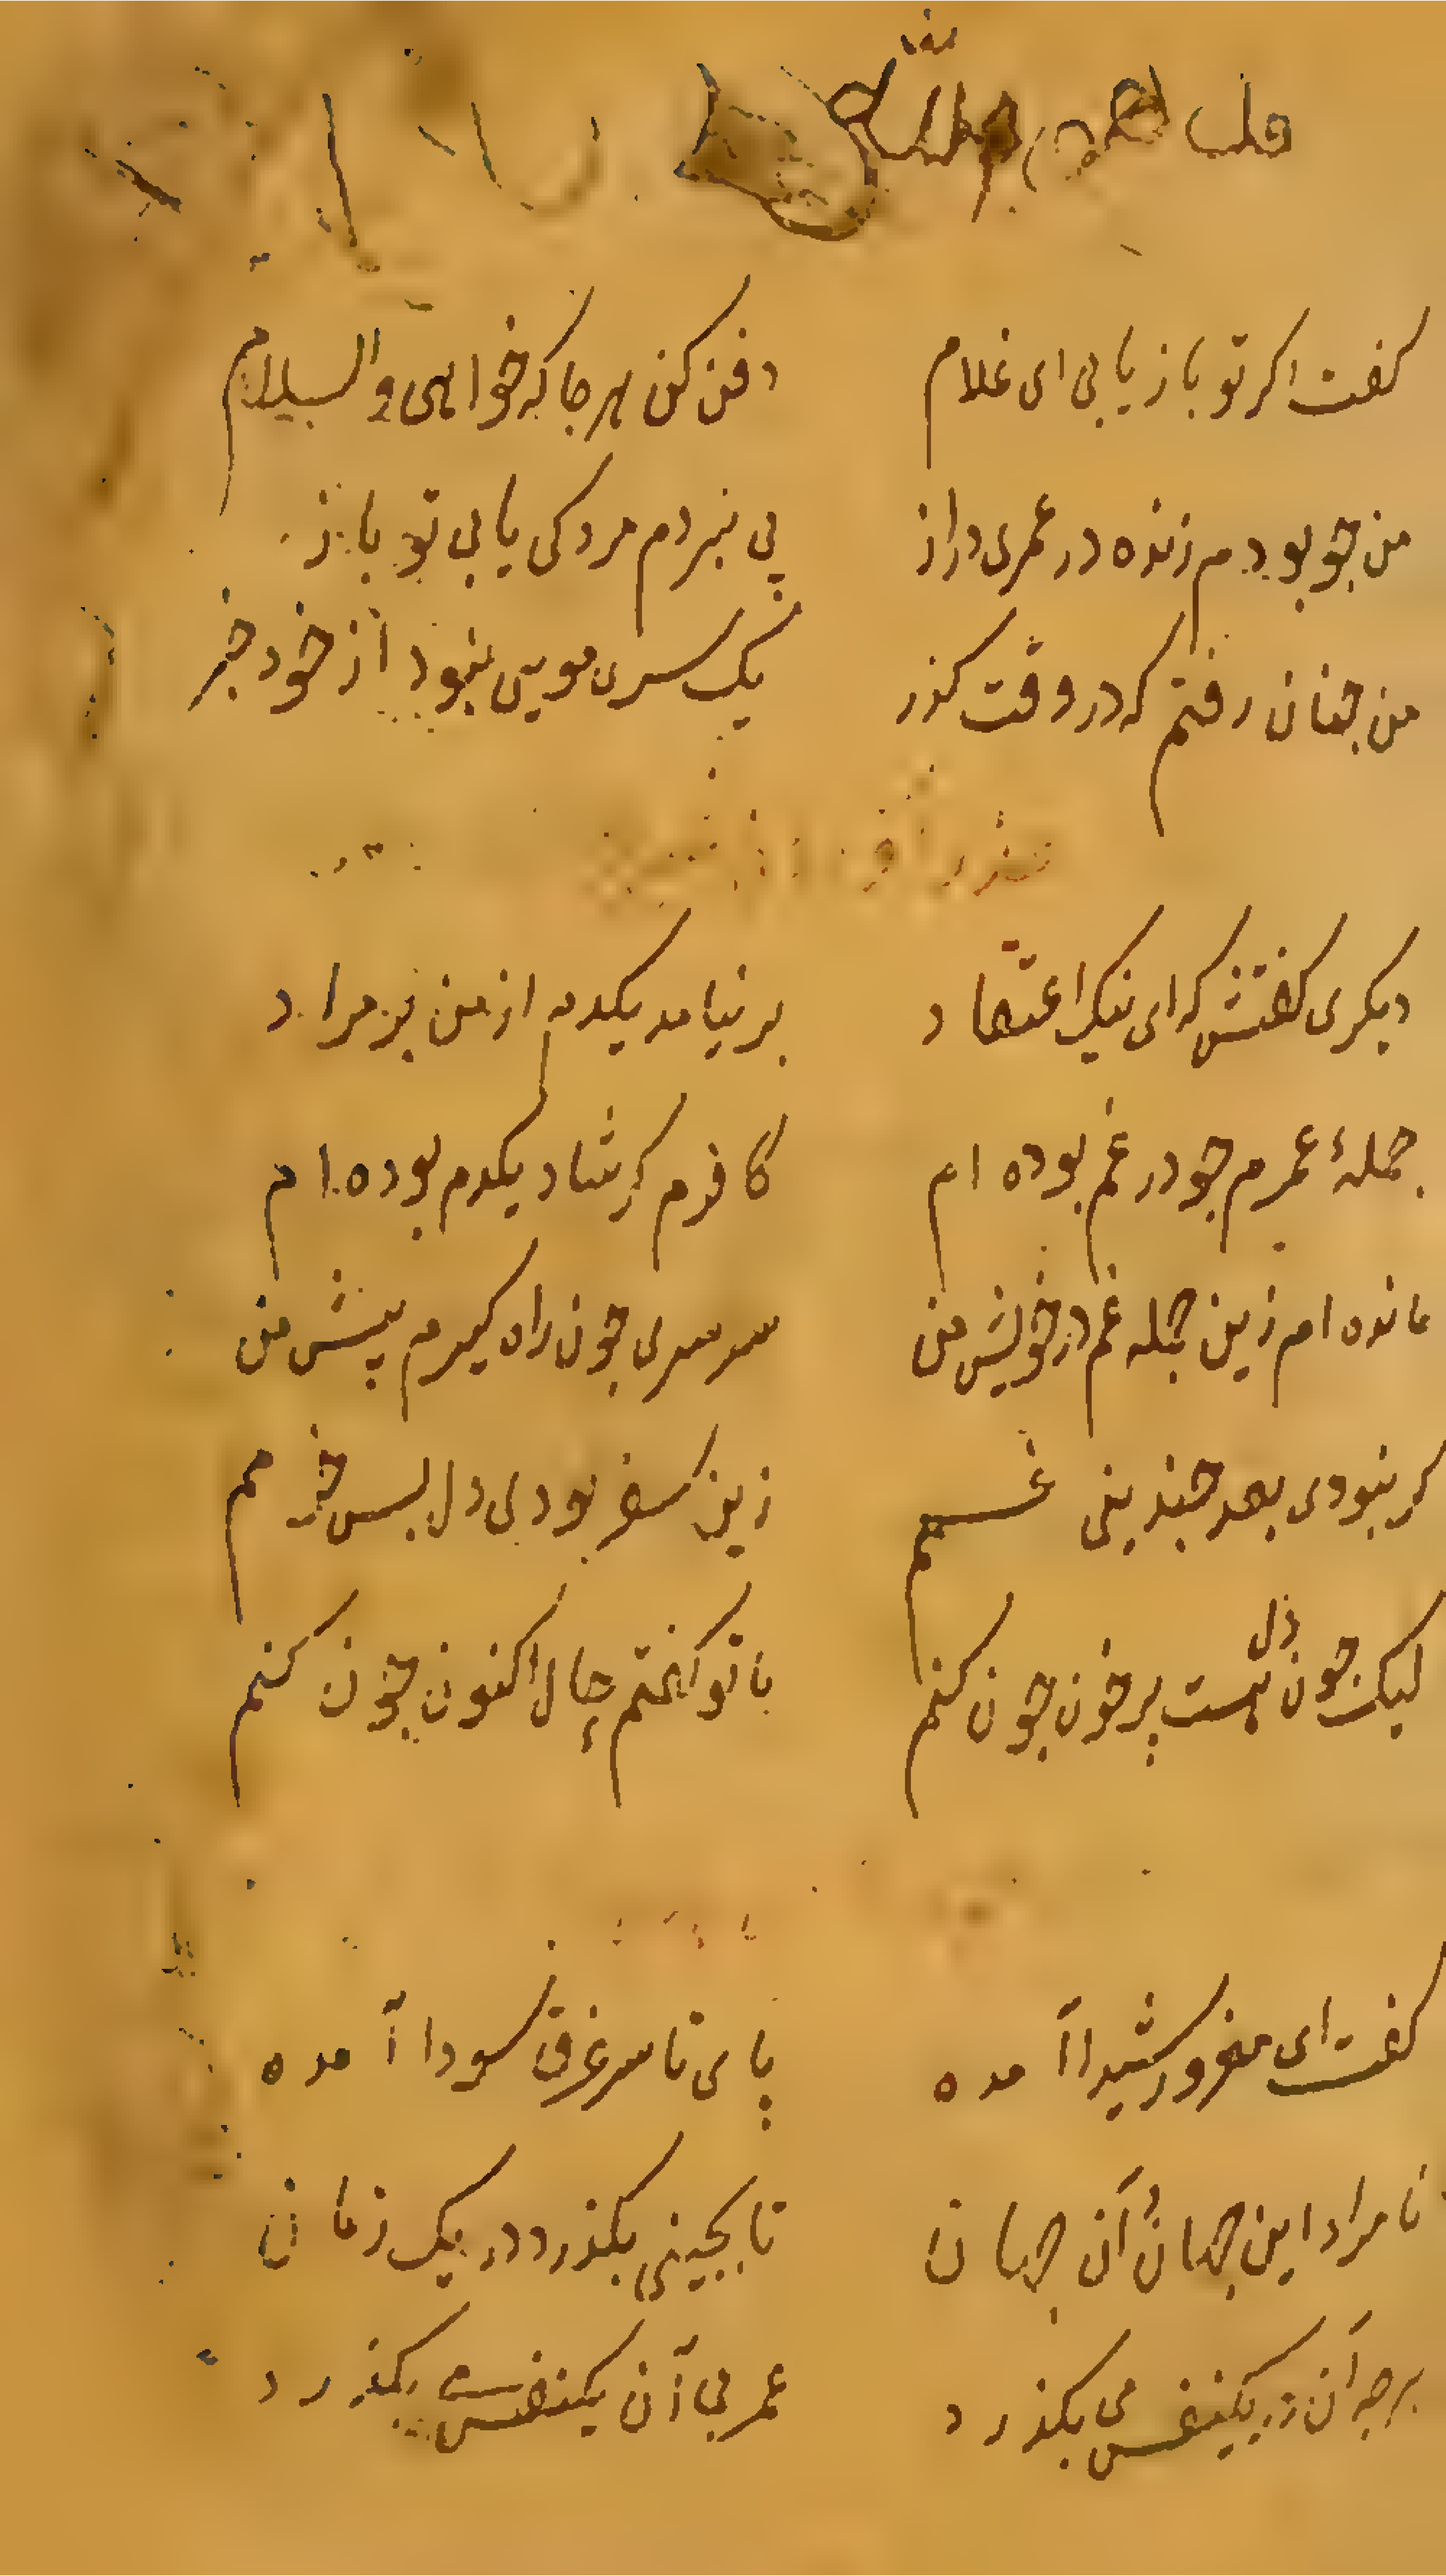 گفت اگر تو باز یابی ای غلام دفن کن هر جا که خواهی والسلام
من جو بودم زنده در عمری دراز پی نبردم مرد کی یابی تو باز
من جنان رفتم که در وقت کذر یک سر مویی نبود از خود خبر
دیکری کفتش که ای نیک اعتقاد بر نیامد یکدم از من بر مراد
جملهٔ عمرم جو در غم بوده ام کافرم کر شاد یکدم بوده ام
مانده ام زین جمله غم در خویش من سرسری جون راه کیرم پیش من
کر نبودی بعد جندینی غمم زین سفر بودی دل بس خرمم
لیک جون دل هست پر خون جون کنم با تو کفتم حال اکنون جون کنم
کفت ای مغرور شیدا آمده پای تا سر غرق سودا آمده
نامراد این جهان و آن جهان تا بجنبی بکذرد در یک زمان
هرجه آن در یکنفس می بکذرد عمر بی آن یکنفس می بکذرد